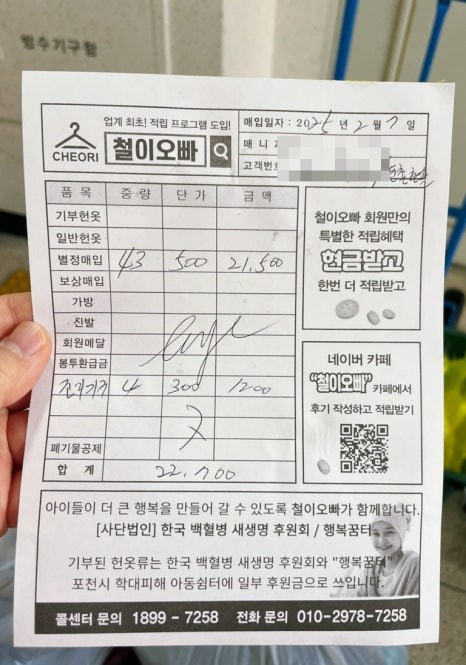 방수기구함
업계 최초! 적립 프로그램 도입!
CHEORI
철이오빠
매입일자 : 2025 년 2 월 7 일
매 니
고객번호
품 목 중 량 단 가 금 액
기부헌옷
일반헌옷
별정매입 43 500 21,500
보상매입
가방
신발
회원메달
봉투환급금
4 300 1200
폐기물공제
합 계 22,700
철이오빠 회원만의
특별한 적립혜택
현금받고
한번 더 적립받고
네이버 카페
"철이오빠" 카페에서
후기 작성하고 적립받기
아이들이 더 큰 행복을 만들어 갈 수 있도록 철이오빠가 함께합니다.
[사단법인] 한국 백혈병 새생명 후원회 / 행복꿈터
기부된 헌옷류는 한국 백혈병 새생명 후원회와 "행복꿈터"
포천시 학대피해 아동쉼터에 일부 후원금으로 쓰입니다.
콜센터 문의 1899 - 7258 전화 문의 010-2978-7258